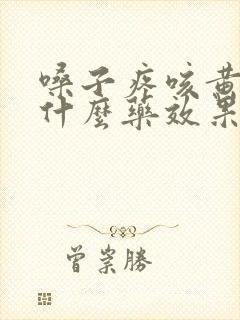 嗓子疼咳黄
什麼藥效果
曾崇勝